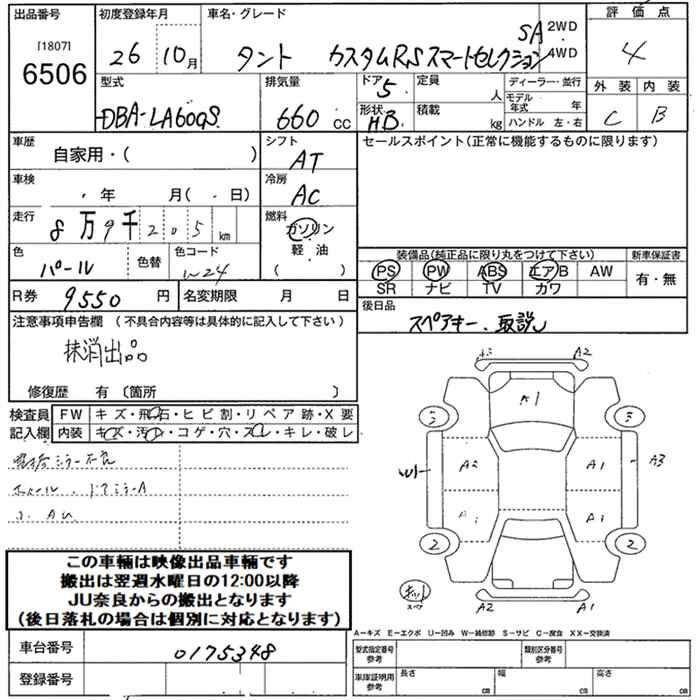 出品番号 初度登録年月 車名・グレード 評価点
[1807]
6506
26 10月 タント カスタムRSスマートセレクション SA 2WD 4WD 4
型式 排気量 ドア 定員 ディーラー・並行 外装 内装
DBA-LA600S 660 CC 5 人 モデル年式 年 C B
形状 HB 積載 kg ハンドル 左・右
車歴 自家用・( ) シフト AT セールスポイント(正常に機能するものに限ります)
車検 年 月( 日) 冷房 AC
走行 8万9千205km 燃料 ガソリン 軽・油 ( )
装備品(純正品に限り丸をつけて下さい) 新車保証書
色 パール 色替 色コード W24
PS PW ABS エアB AW 有・無
SR ナビ TV カワ
R券 9550 円 名変期限 月 日
後日品 スペアキー、取説
注意事項申告欄 (不具合内容等は具体的に記入して下さい)
抹消出品
修復歴 有 〔箇所 〕
検査員 FW キズ・飛石・ヒビ割・リペア跡・X要
記入欄 内装 キズ・汚・コゲ・穴・スレ・キレ・破レ
A2
A1
3 3
A2 A1 A3
A1 A1
2 2
スペア
A2 A1
この車輛は映像出品車輛です
搬出は翌週水曜日の12:00以降
JU奈良からの搬出となります
(後日落札の場合は個別に対応となります)
A－キズ E－エクボ U－凹み W－補修跡 S－サビ C－腐食 XX－交換済
車台番号 0175348
型式指定番号 参考 類別区分番号 参考
登録番号
車庫証明用 参考 長さ cm 幅 cm 高さ cm